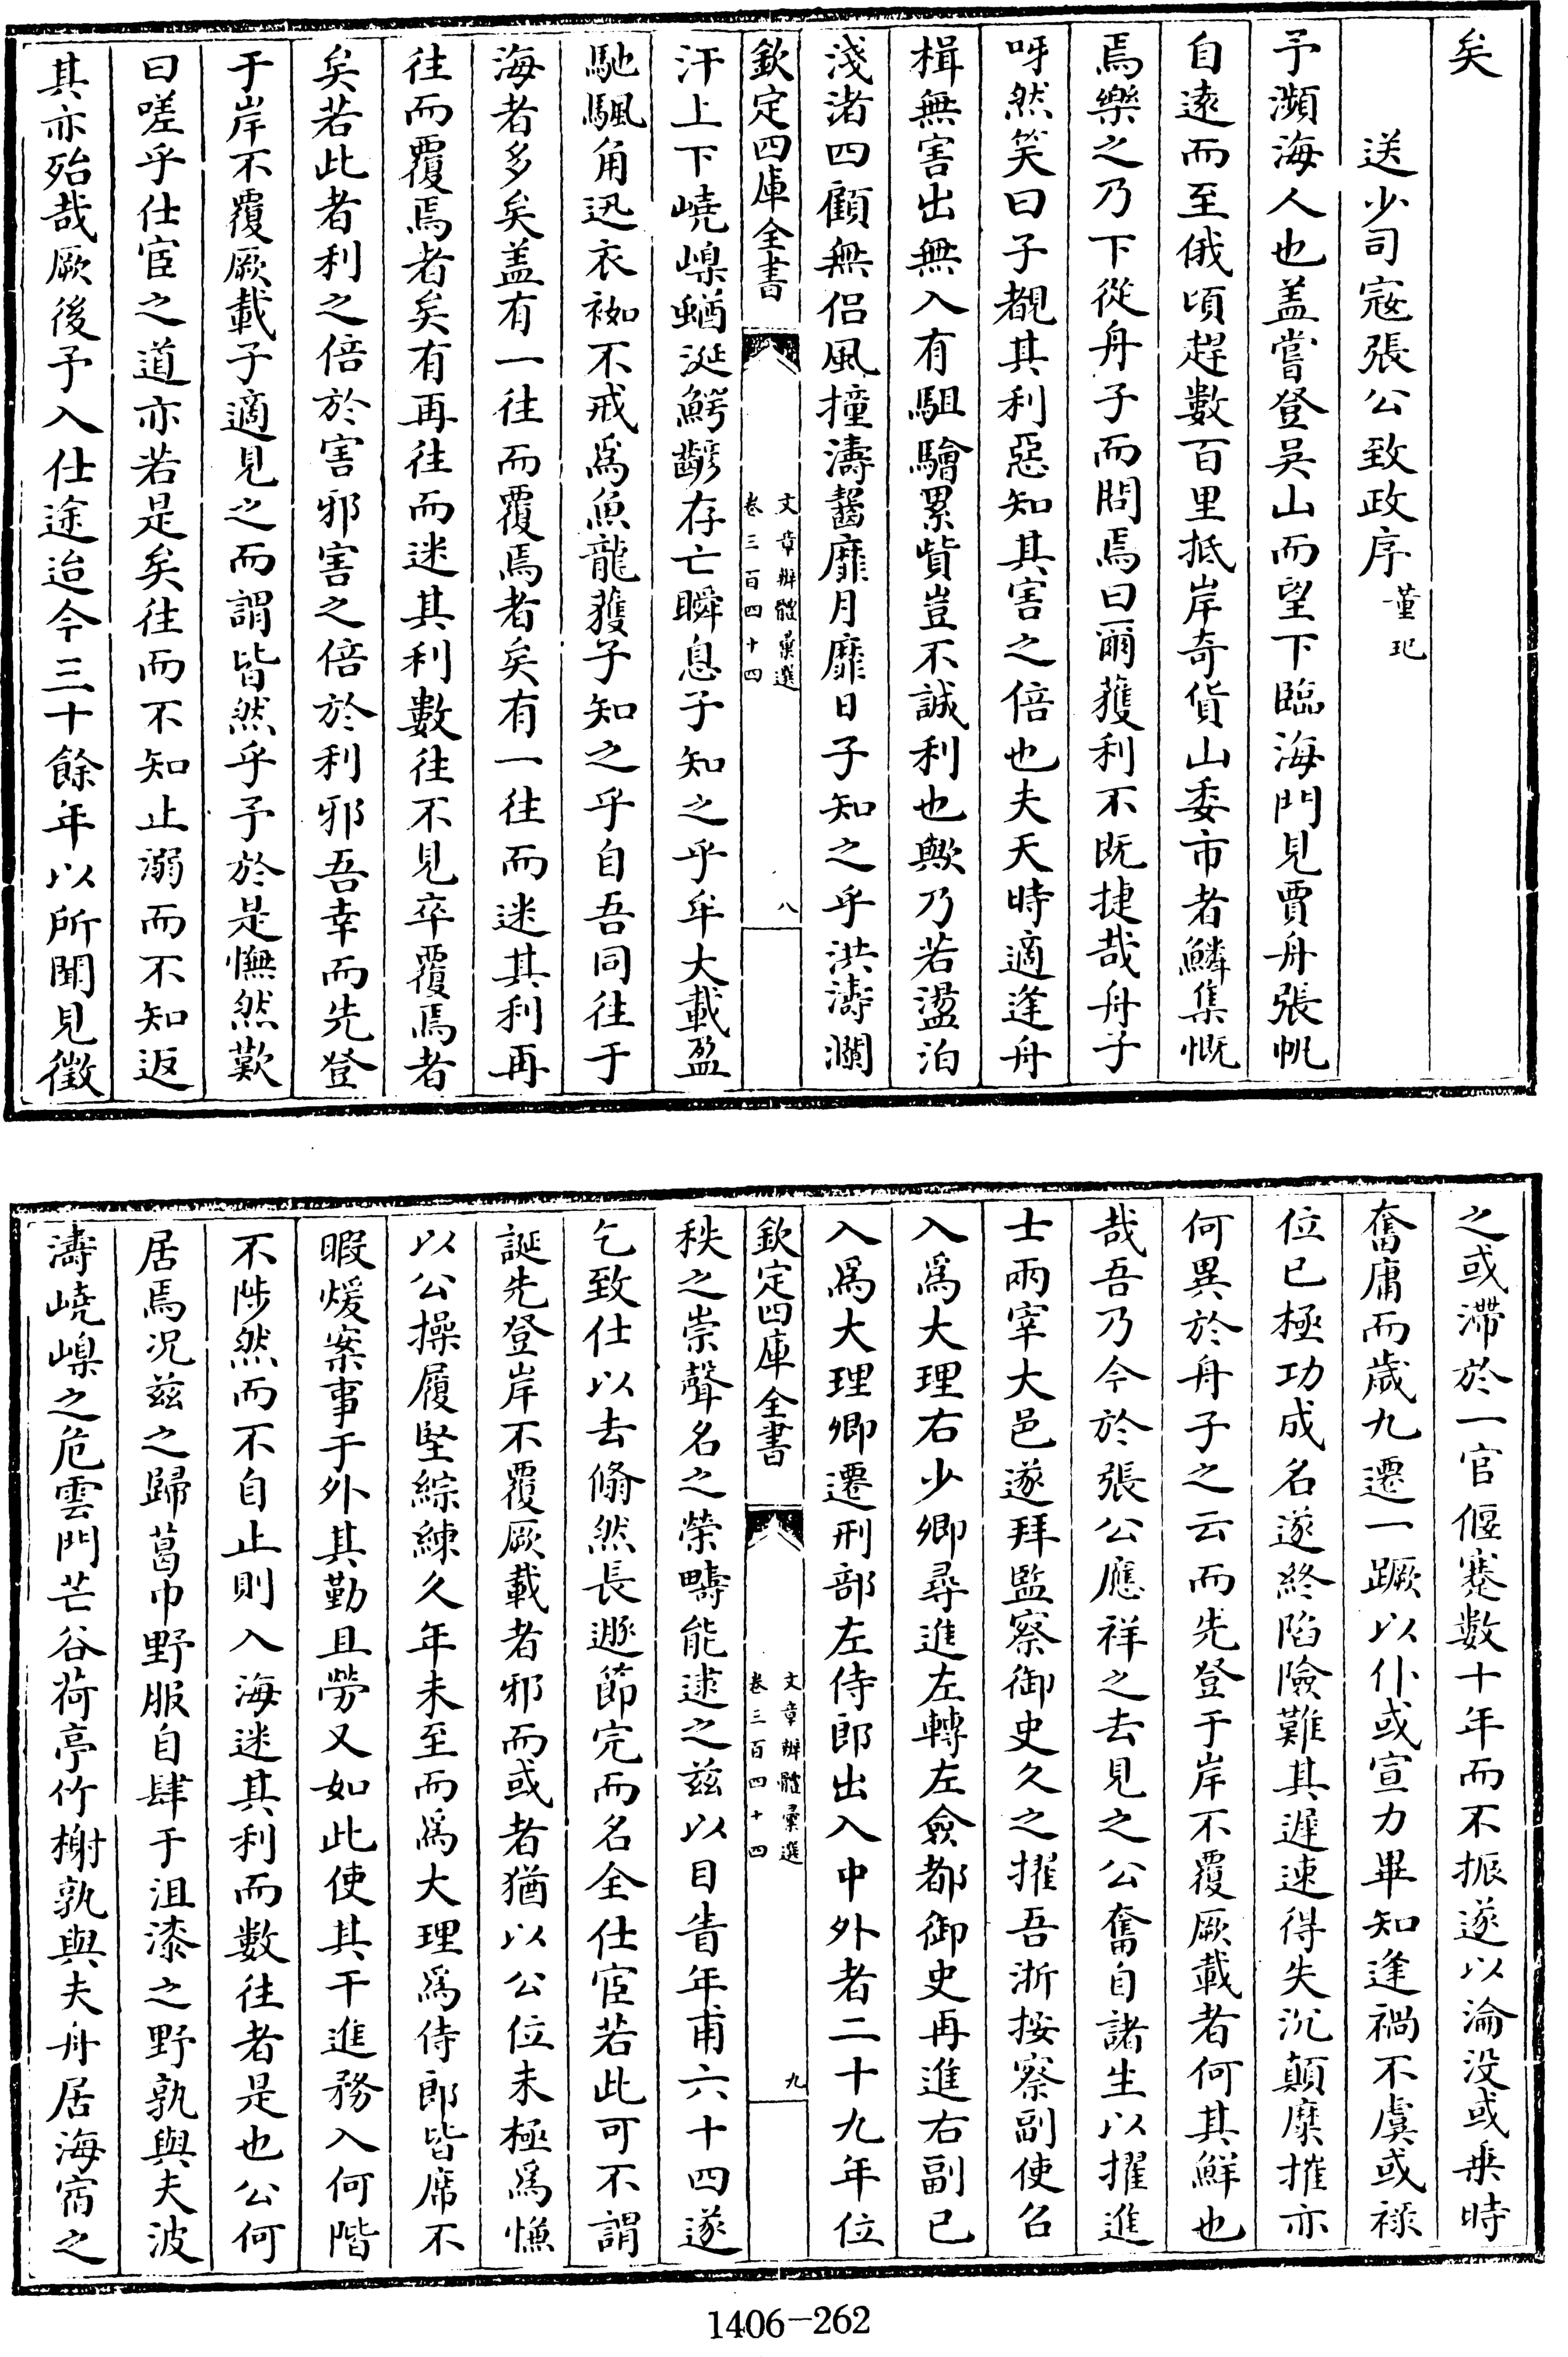 矣
送少司寇張公致政序董玘
予瀕海人也盖嘗登吳山而望下臨海門見賈舟張帆
自遠而至俄頃趕數百里抵岸奇貨山委市者鱗集慨
焉樂之乃下從舟子而問焉曰爾獲利不既捷哉舟子
呀然笑曰子覩其利惡知其害之倍也夫天時適逢舟
楫無害出無入有駔驓累貲豈不誠利也歟乃若盪泊
淺渚四顧無侣風撞濤齧靡月靡日子知之乎洪濤瀾
欽定四庫全書
文章辨體彚選
卷三百四十四
八
汗上下嶢嵲蝤涎鰐齶存亡瞬息子知之乎牟大載盈
馳颿角迅衣袽不戒爲魚龍獲子知之乎自吾同往于
海者多矣盖有一往而覆焉者矣有一往而迷其利再
往而覆焉者矣有再往而迷其利數往不見卒覆焉者
矣若此者利之倍於害邪害之倍於利邪吾幸而先登
于岸不覆厥載子適見之而謂皆然乎予於是憮然歎
曰嗟乎仕宦之道亦若是矣往而不知止溺而不知返
其亦殆哉厥後予入仕途迨今三十餘年以所聞見徵
之或滯於一官偃蹇數十年而不振遂以淪没或乗時
奮庸而歲九遷一蹶以仆或宣力畢知逢禍不虞或禄
位已極功成名遂終陷險難其遲速得失沉顛糜摧亦
何異於舟子之云而先登于岸不覆厥載者何其鮮也
哉吾乃今於張公應祥之去見之公奮自諸生以擢進
士兩宰大邑遂拜監察御史久之擢吾浙按察副使召
入爲大理右少卿尋進左轉左僉都御史再進右副已
入爲大理卿遷刑部左侍郎出入中外者二十九年位
欽定四庫全書
文章辨體彚選
卷三百四十四
九
秩之崇聲名之榮疇能逮之兹以目眚年甫六十四遂
乞致仕以去翛然長遯節完而名全仕宦若此可不謂
誕先登岸不覆厥載者邪而或者猶以公位未極爲憮
以公操履堅綜練久年未至而爲大理爲侍郎皆席不
暇煖案事于外其勤且勞又如此使其干進務入何階
不陟然而不自止則入海迷其利而數往者是也公何
居焉况兹之歸葛巾野服自肆于沮漆之野孰與夫波
濤嶢嵲之危雲門芒谷荷亭竹榭孰與夫舟居海宿之
1406-262